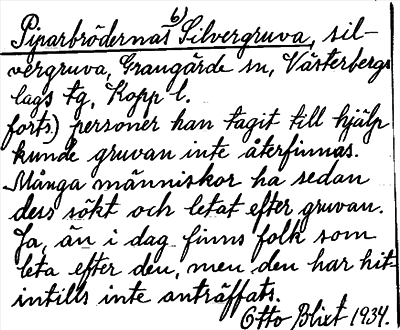 6)
Piparbrödernas Silvergruva, sil-
vergruva, Grangärde sn, Västerbergs
lags tg, Kopp l.
forts.) personer han tagit till hjälp
kunde gruvan inte återfinnas.
Många människor ha sedan
dess sökt och letat efter gruvan.
Ja, än i dag finns folk som
leta efter den, men den har hit-
intills inte anträffats.
Otto Blixt 1934.